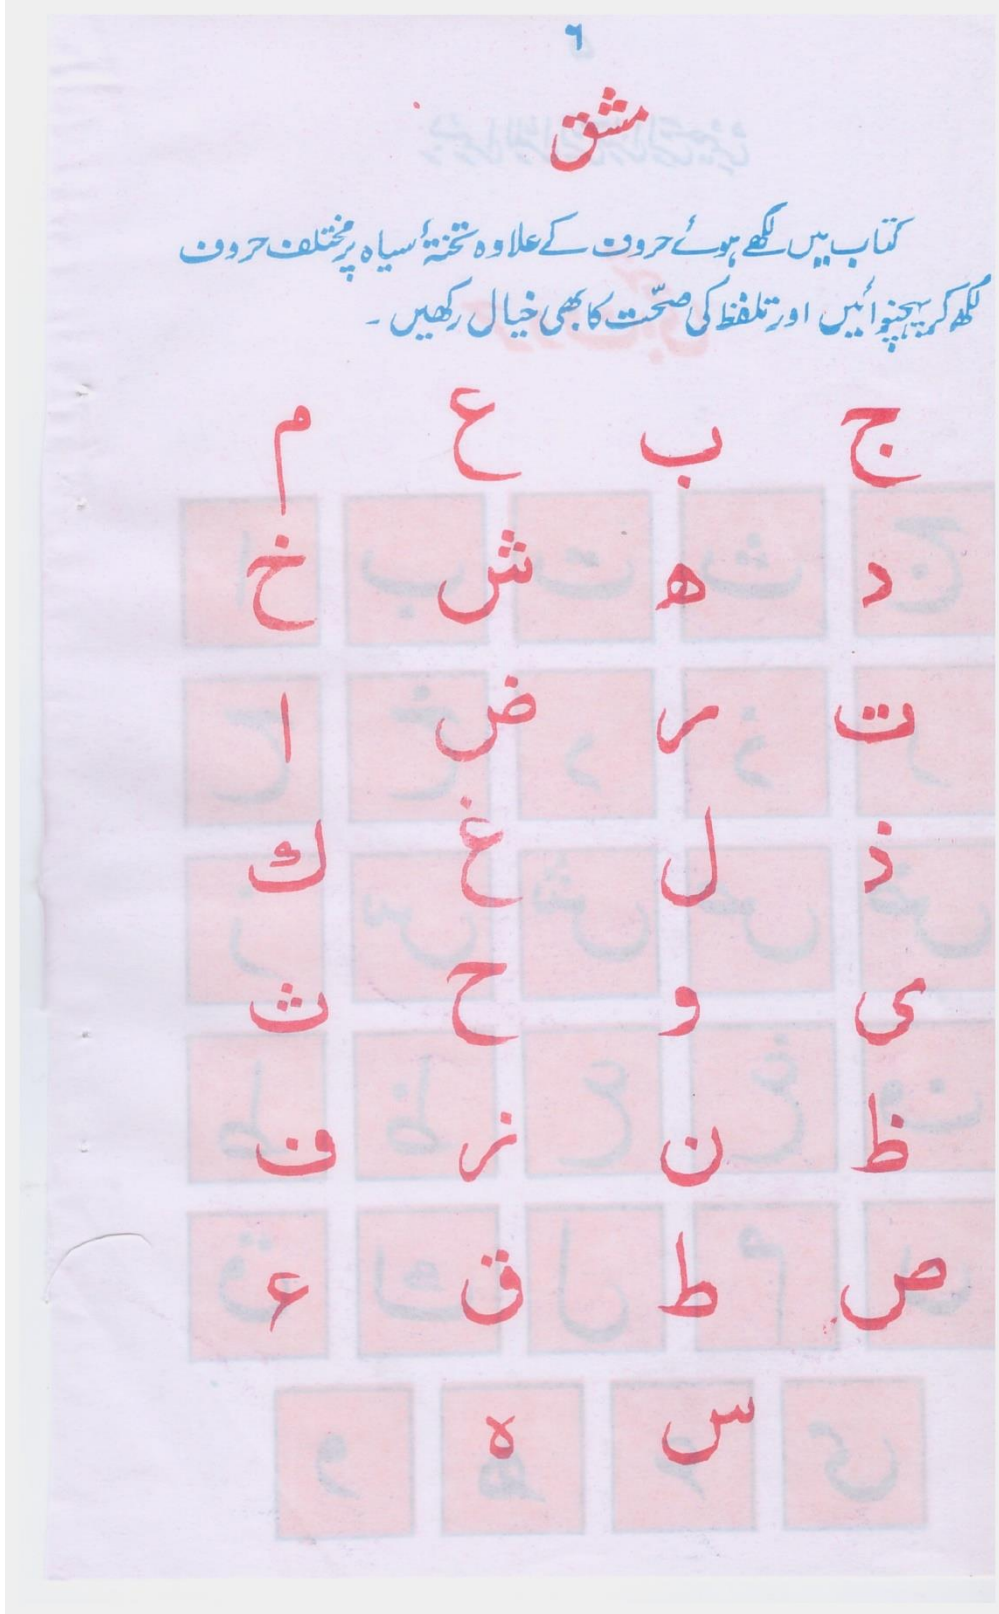 ۶
مشق
کتاب میں لکھے ہوئے حروف کے علاوہ تختۂ سیاہ پر مختلف حروف
لکھ کر پہچنوائیں اور تلفظ کی صحّت کا بھی خیال رکھیں ۔
ج ب ع م
د ھ ش خ
ت ر ض ا
ذ ل غ ك
ی و ح ث
ظ ن ز ف
ص ط ق ء
س ہ